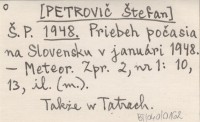 [PETROVIČ Štefan]
Š.P. 1948. Priebeh počasia
na Slovensku v januári 1948.
— Meteor. Zpr. 2, nr 1: 10,
13, il. (m.).
Także w Tatrach.